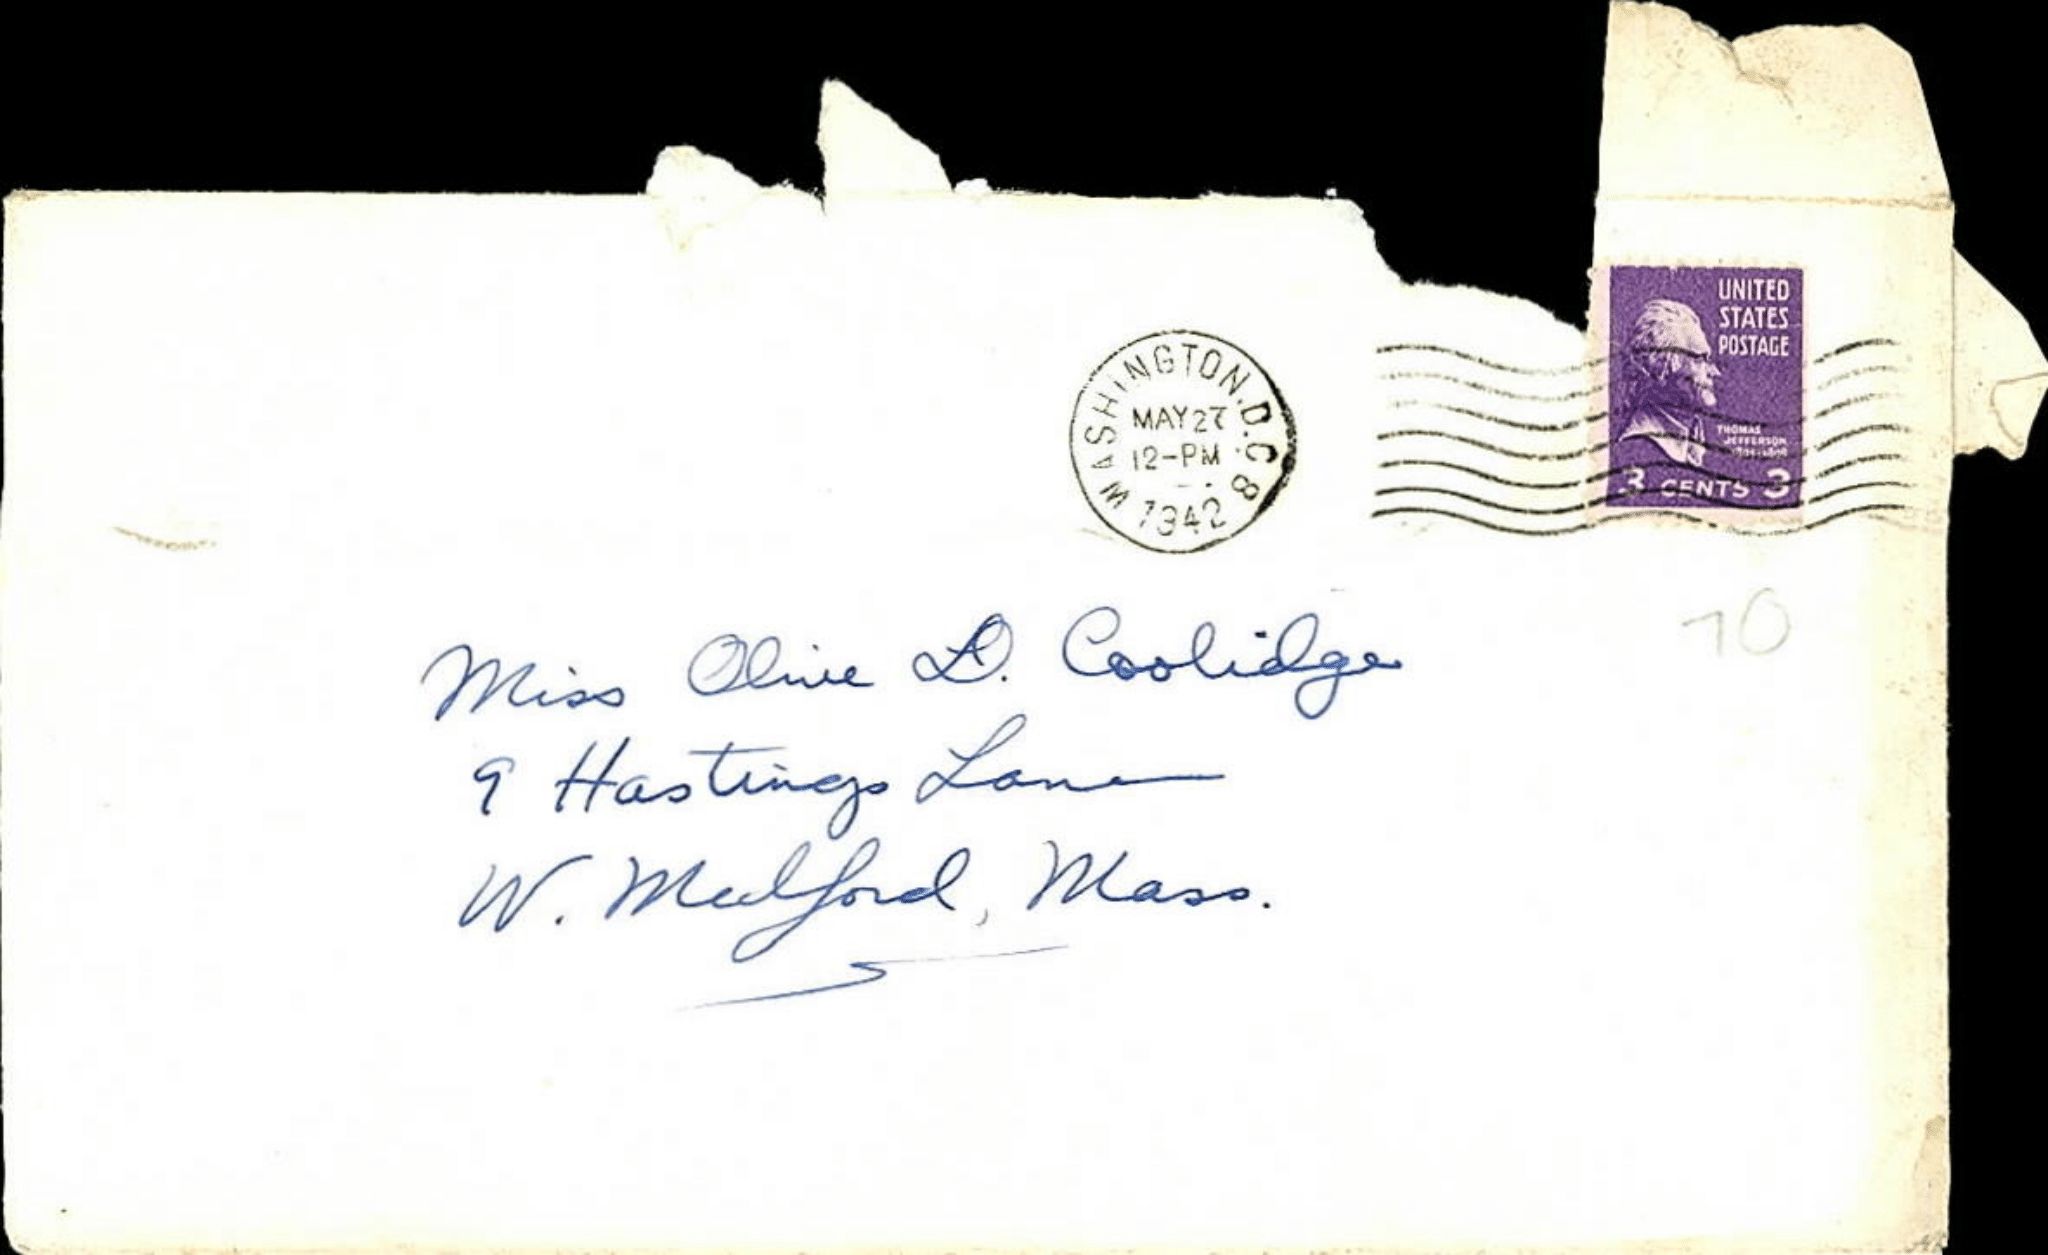 WASHINGTON, D.C. 8
MAY 27
12-PM
1942
UNITED
STATES
POSTAGE
THOMAS
JEFFERSON
3 CENTS 3
70
Miss Olive D. Coolidge
9 Hastings Lane
W. Medford, Mass.